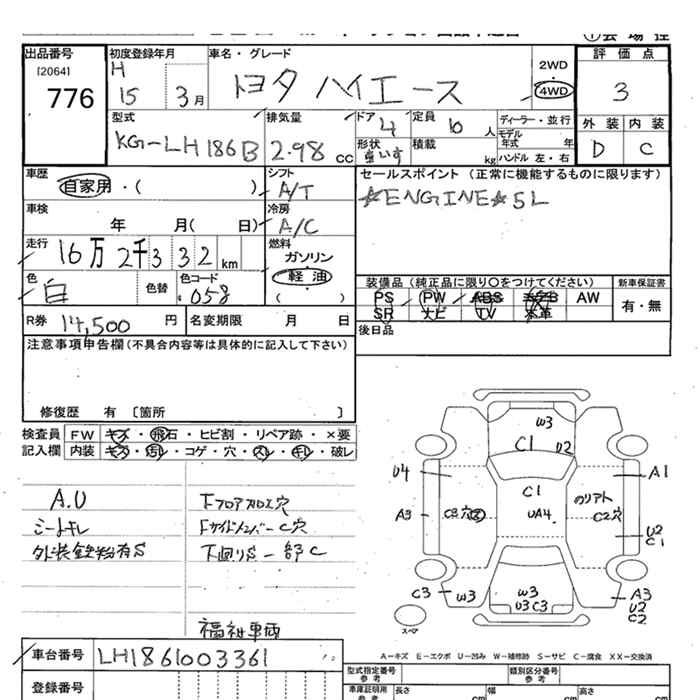 出品番号 初度登録年月 車名・グレード 評価点
[2064] H 2WD
776 15 3月 トヨタ ハイエース 4WD 3
型式 排気量 ドア 定員 ディーラー・並行 外装 内装
4 10人 モデル年式 年
KG-LH186B 2.98 cc 形状 車いす 積載 kg ハンドル 左・右 D C
車歴 シフト セールスポイント (正常に機能するものに限ります)
自家用・( ) A/T ★ENGINE★5L
車検 冷房
年 月( 日) A/C
走行 燃料
16万2千332km ガソリン
色 色替 色コード 軽油 装備品(純正品に限り○をつけてください) 新車保証書
白 058 ( ) PS PW ABS AW 有・無
SR ナビ TV 本革
R券 14,500 円 名変期限 月 日 後日品
注意事項申告欄(不具合内容等は具体的に記入して下さい)
修復歴 有 [箇所 ]
検査員 FW キズ・飛石・ヒビ割・リペア跡・×要
記入欄 内装 キズ・汚れ・コゲ・穴・スレ・キレ・破レ
A.U 下フロアフロS穴
シートキレ 下サイドメンバーC穴
下回りS一部C
福祉車両
W3
C1 U2
U4 C1 A1
A3 UA4 C2穴
U2
C1
C3 W3 W3 W3 A3
U3C3 U2
C2
スペア
A-キズ E-エクボ U-凹み W-補修跡 S-サビ C-腐食 XX-交換済
車台番号 LH1861003361
型式指定番号 参考 類別区分番号 参考
登録番号 車庫証明用 参考 長さ cm 幅 cm 高さ cm